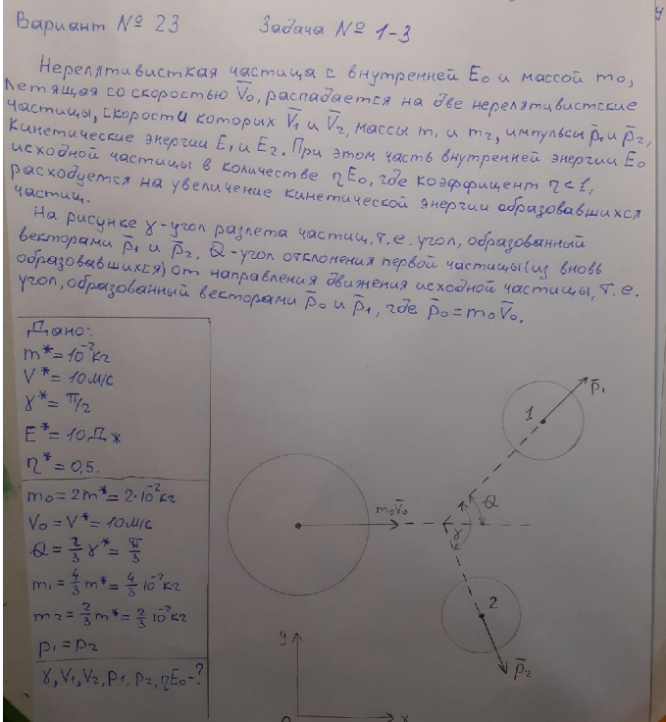 Вариант № 23 Задача № 1-3
Нерелятивисткая частица с внутренней E₀ и массой m₀,
летящая со скоростью V̄₀, распадается на две нерелятивистские
частицы, скорости которых V̄₁ и V̄₂, массы m₁ и m₂, импульсы p̄₁ и p̄₂,
кинетические энергии E₁ и E₂. При этом часть внутренней энергии E₀
исходной частицы в количестве ηE₀, где коэффицент η<1,
расходуется на увеличение кинетической энергии образовавшихся
частиц.
На рисунке γ-угол разлета частиц, т.е. угол, образованный
векторами p̄₁ и p̄₂, Q-угол отклонения первой частицы (из вновь
образовавшихся) от направления движения исходной частицы, т.е.
угол, образованный векторами p̄₀ и p̄₁, где p̄₀=m₀V̄₀.
Дано:
m*=10⁻²кг
V*=10м/с
γ*=π/2
E*=10Дж
η*=0,5.
m₀=2m*=2·10⁻²кг
V₀=V*=10м/с
Q=2/3 γ*=π/3
m₁=4/3 m*=4/3 10⁻²кг
m₂=2/3 m*=2/3 10⁻²кг
p₁=p₂
γ, V₁, V₂, p₁, p₂, ηE₀-?
1
p̄₁
m₀V̄₀
Q
γ
2
p̄₂
y
0
x